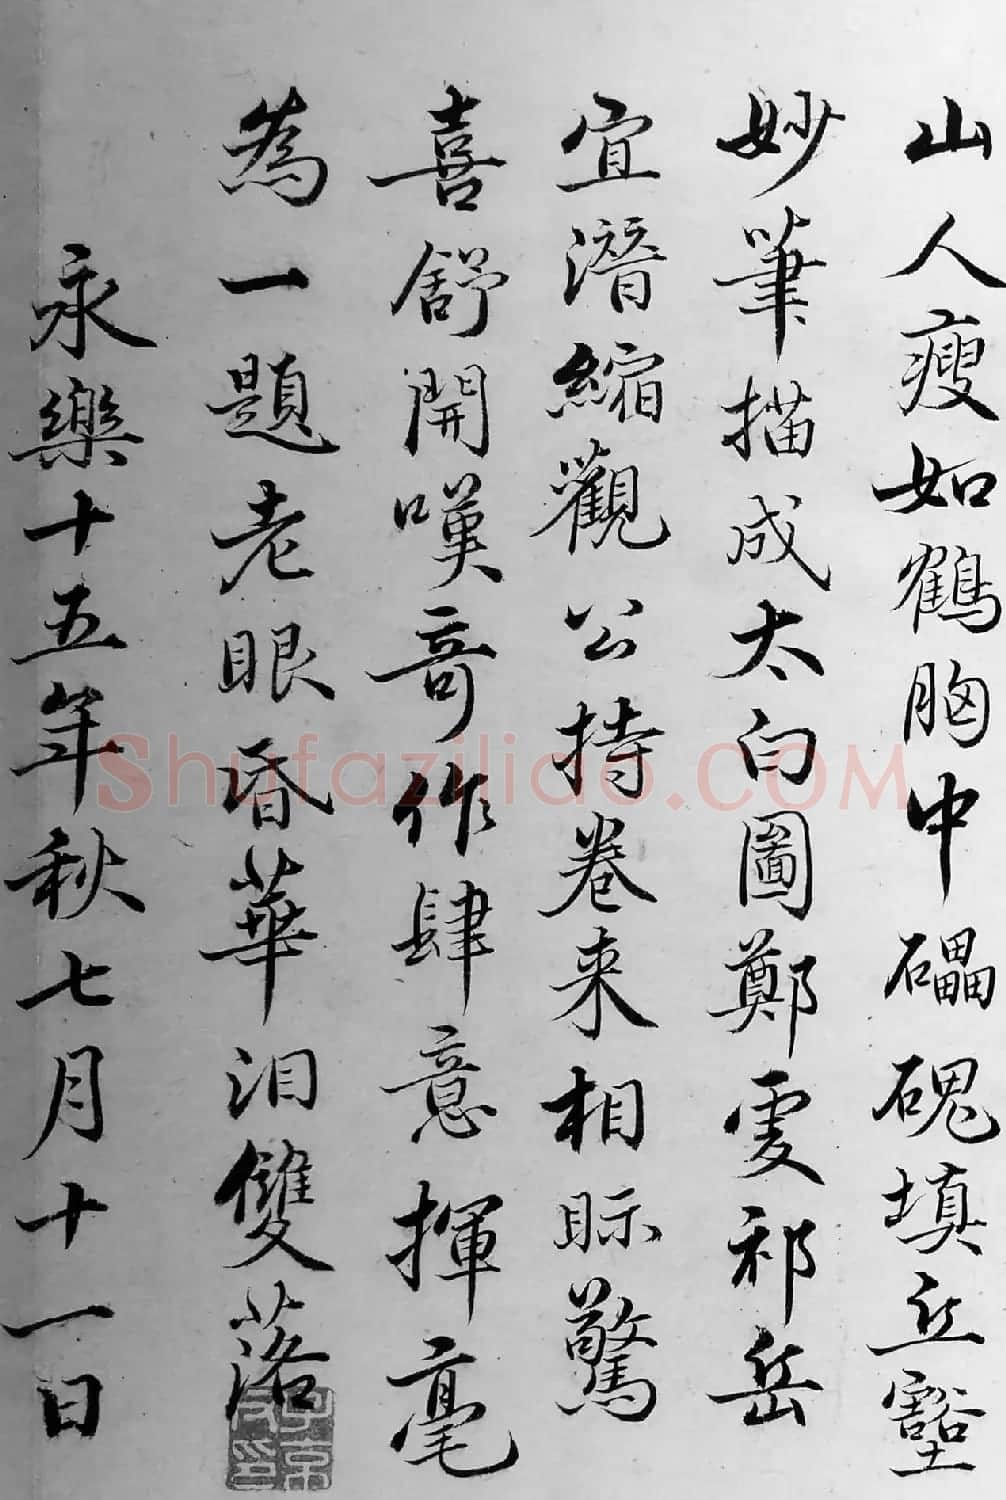 山人瘦如鶴胸中礧磈填丘壑
妙筆描成太白圖鄭虔祁岳
宜潛縮觀公持卷来相眎驚
喜舒開嘆哥作肆意揮毫
為一題老眼昏華泪雙落
永樂十五年秋七月十一日
Shufaziliao.COM